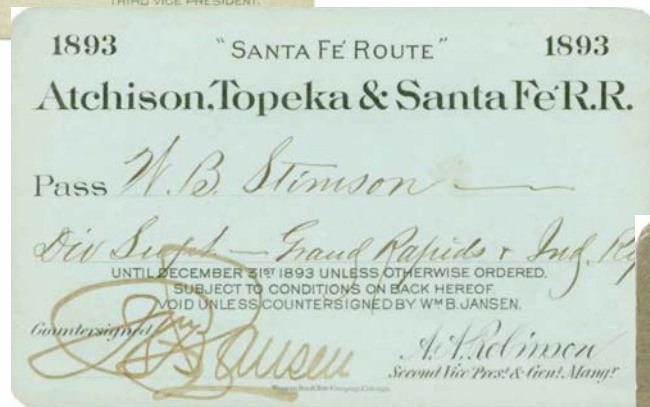 THIRD VICE PRESIDENT.
1893 "SANTA FÉ ROUTE" 1893
Atchison, Topeka & Santa Fé R.R.
Pass W. B. Stimson
Div Supt — Grand Rapids & Ind. Ry
UNTIL DECEMBER 31ST 1893 UNLESS OTHERWISE ORDERED,
SUBJECT TO CONDITIONS ON BACK HEREOF.
VOID UNLESS COUNTERSIGNED BY WM B. JANSEN.
Countersigned
Wm B Jansen
A. A. Robinson
Second Vice Prest & Genl. Mangr.